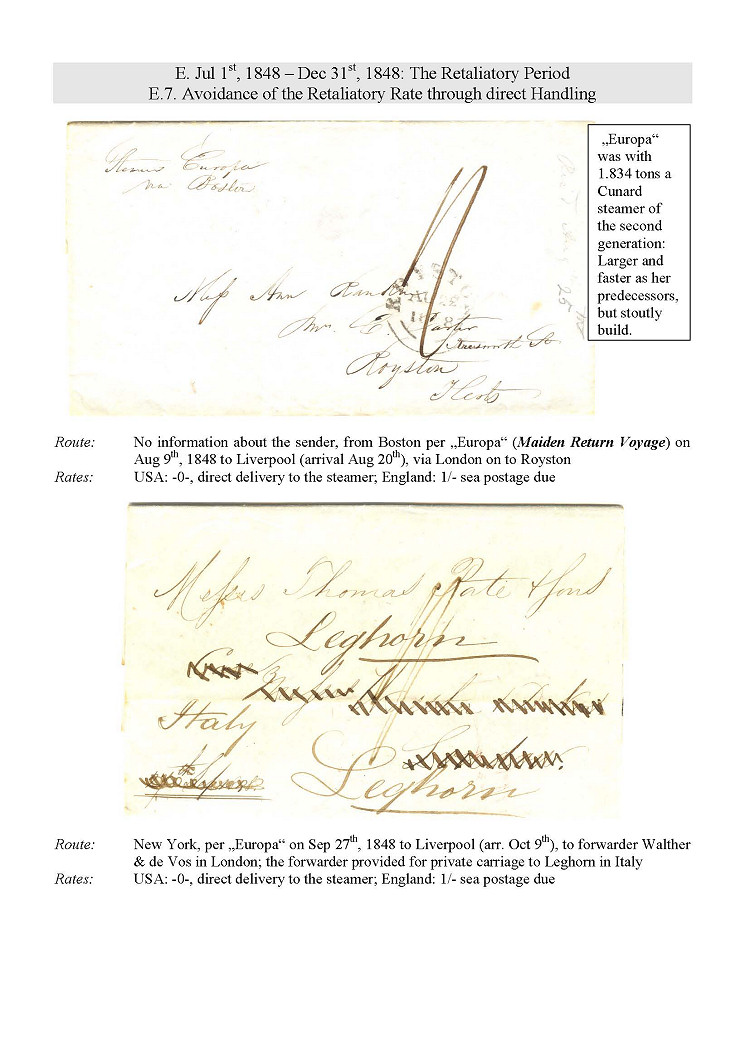 E. Jul 1st, 1848 – Dec 31st, 1848: The Retaliatory Period
E.7. Avoidance of the Retaliatory Rate through direct Handling
Steamer Europa
via Boston
Miss Ann
Royston
Herts
„Europa“
was with
1.834 tons a
Cunard
steamer of
the second
generation:
Larger and
faster as her
predecessors,
but stoutly
build.
Route: No information about the sender, from Boston per „Europa“ (Maiden Return Voyage) on
Aug 9th, 1848 to Liverpool (arrival Aug 20th), via London on to Royston
Rates: USA: -0-, direct delivery to the steamer; England: 1/- sea postage due
Messrs Thomas Pate & Sons
Leghorn
Italy
Leghorn
Route: New York, per „Europa“ on Sep 27th, 1848 to Liverpool (arr. Oct 9th), to forwarder Walther
& de Vos in London; the forwarder provided for private carriage to Leghorn in Italy
Rates: USA: -0-, direct delivery to the steamer; England: 1/- sea postage due